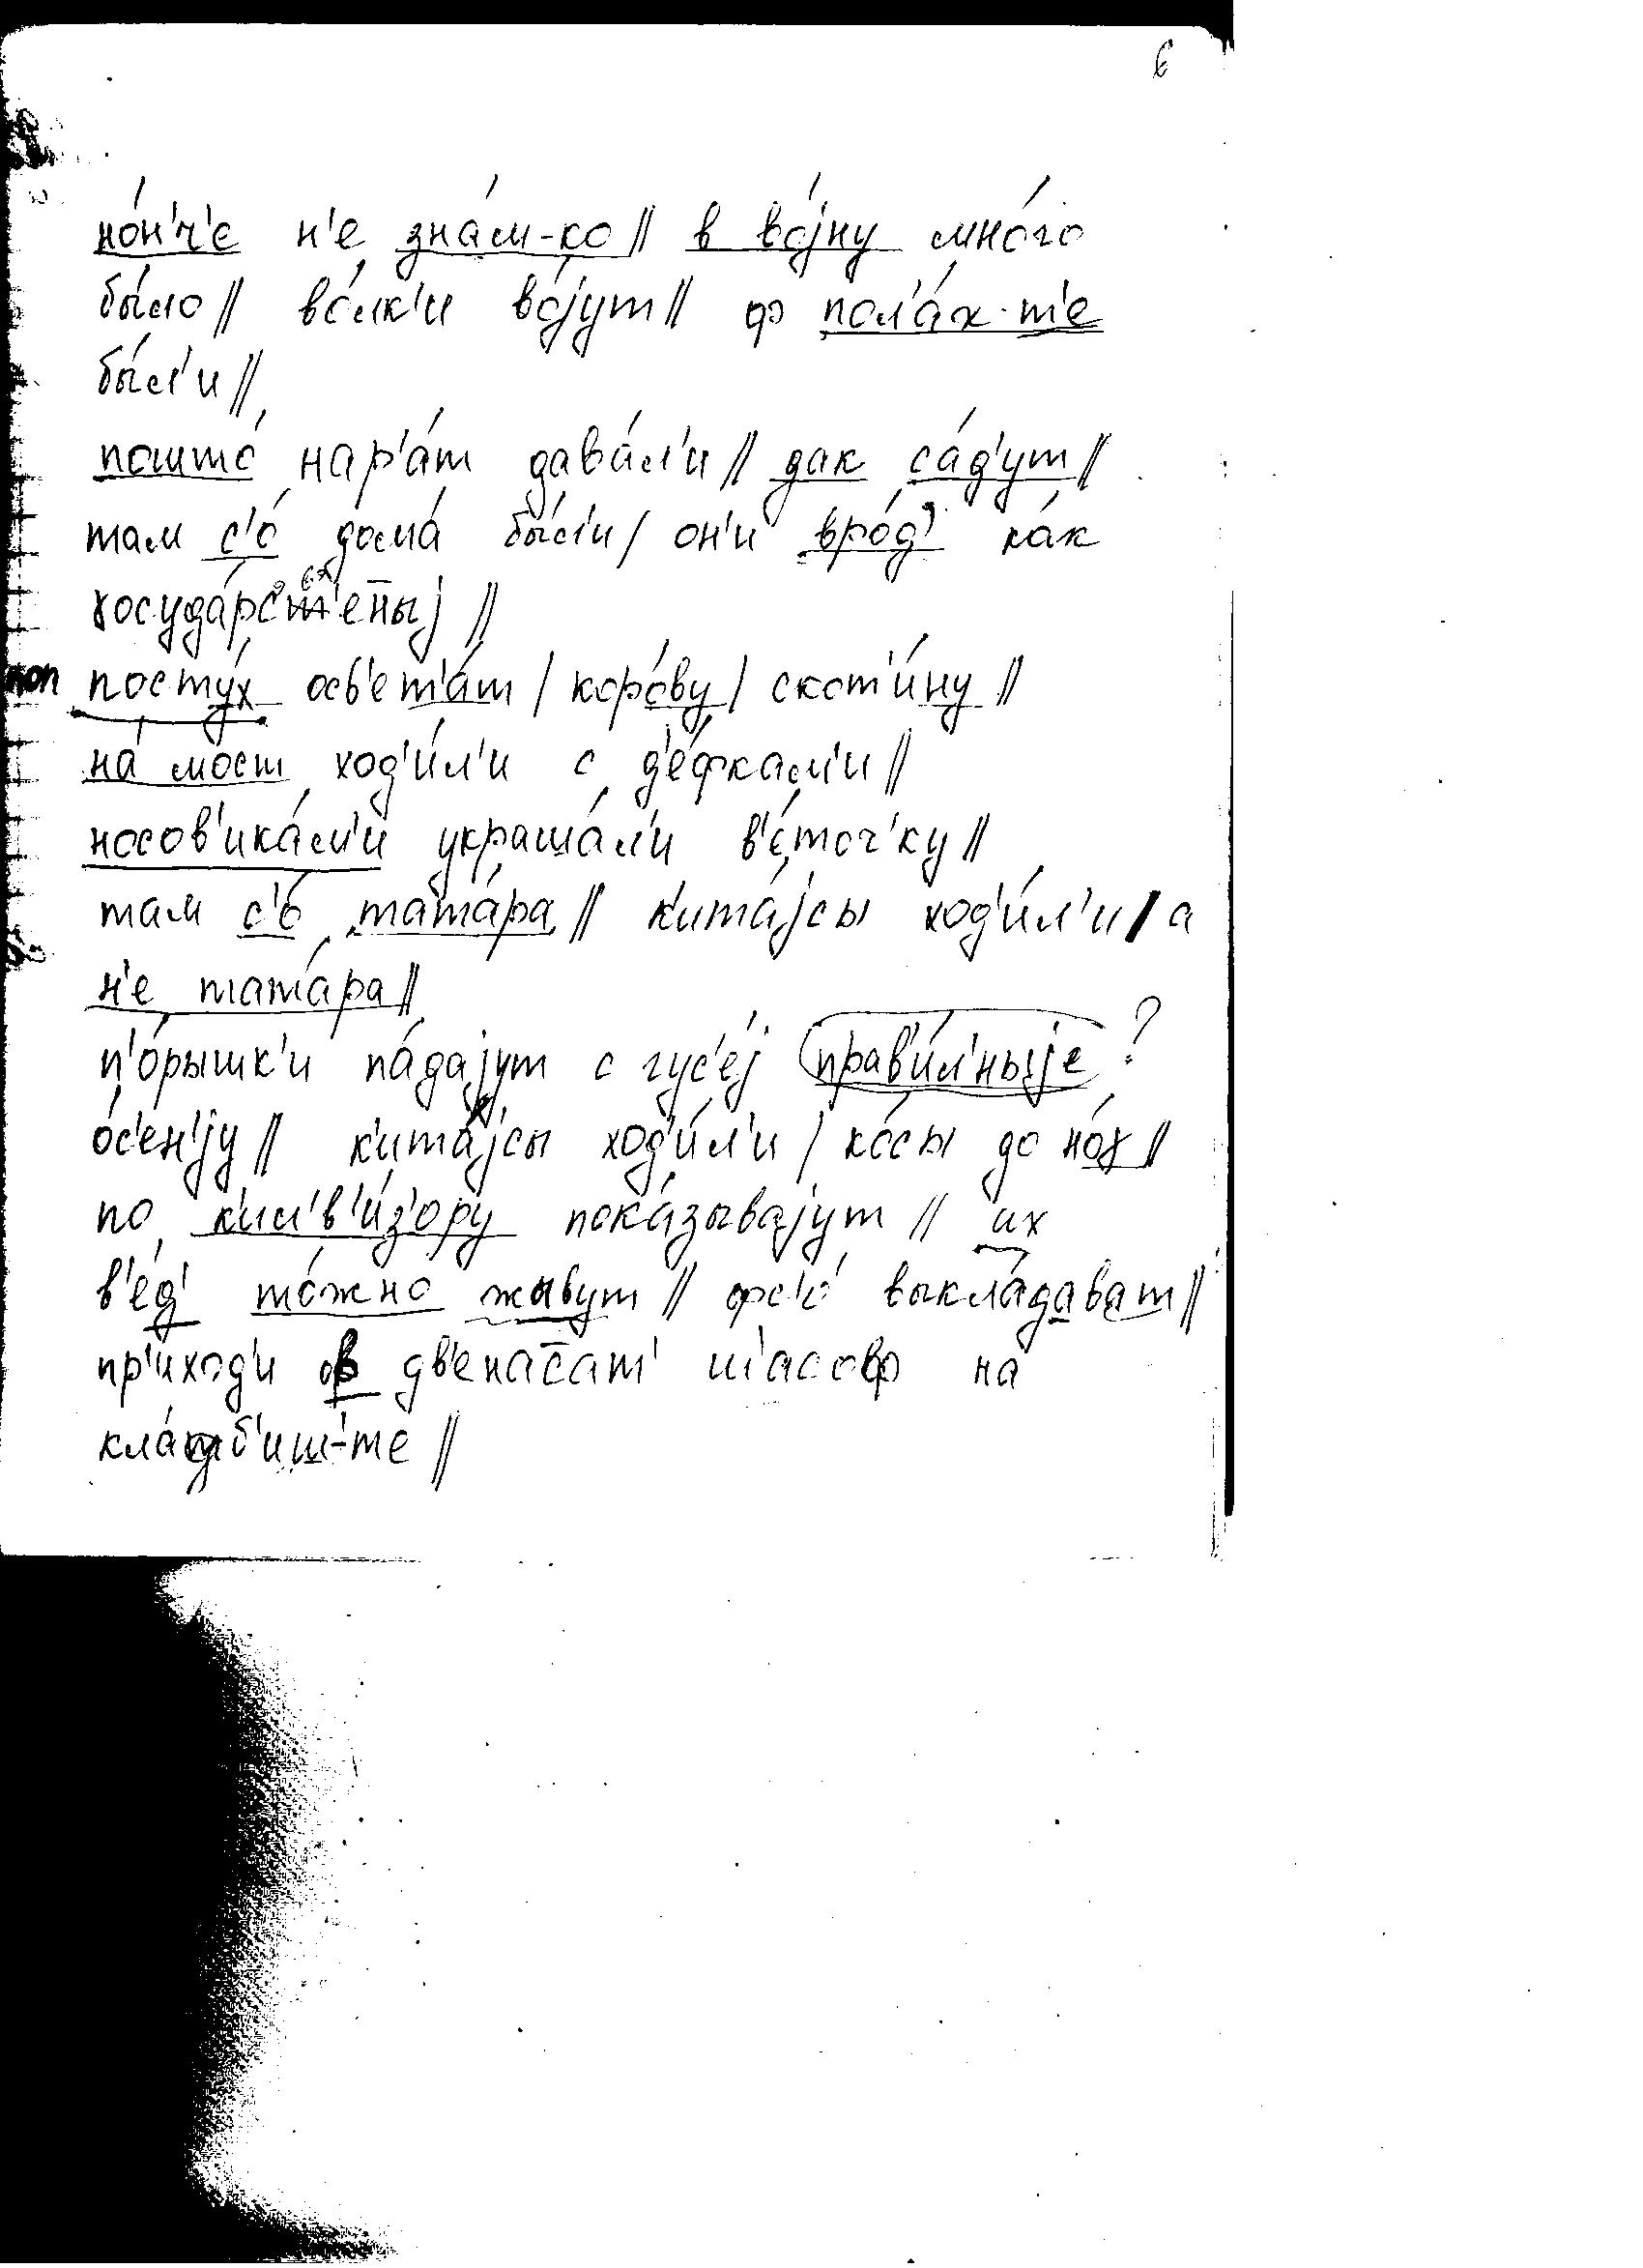 6
но́н'ч'е н'е зна́м-ко// в во́jну мно́го
бы́ло// во́лк'и во́jут// ф пол'а́х-т'е
бы́л'и//
пошто́ нар'а́т дава́л'и// дак са́д'ут//
там с'о́ дома́ бы́л'и/ он'и вро́д' ка́к
γосуда́рст'ен̄ыj//
поп посту́х осв'ет'а́т/ коро́ву/ скот'и́ну//
на́ мост ход'и́л'и с д'е́фкам'и//
носов'ика́м'и украша́л'и в'е́точ'ку//
там с'о́ тата́ра// к'ита́jсы ход'и́л'и/ а
н'е тата́ра//
п'о́рышк'и па́даjут с гус'е́j прав'и́л'ныjе ?
о́с'ен'jу// к'ита́jсы ход'и́л'и/ ко́сы до но́γ//
по к'ил'в'и́з'ору пока́зываjут// их
в'е́д' то́жно живут// фс'о́ выкла́дават//
пр'иход'и в дв'енас̄ат' ш'асоф на
кла́дб'иш'-те//